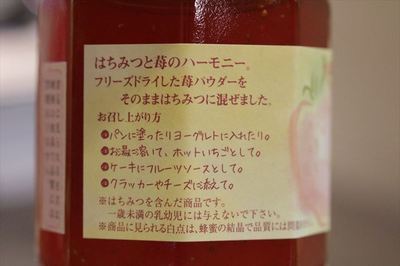 はちみつと苺のハーモニー。
フリーズドライした苺パウダーを
そのままはちみつに混ぜました。
お召し上がり方
●パンに塗ったりヨーグルトに入れたり。
●お湯に溶いて、ホットいちごとして。
●ケーキにフルーツソースとして。
●クラッカーやチーズに添えて。
※はちみつを含んだ商品です。
一歳未満の乳幼児には与えないで下さい。
※商品に見られる白点は、蜂蜜の結晶で品質には問題